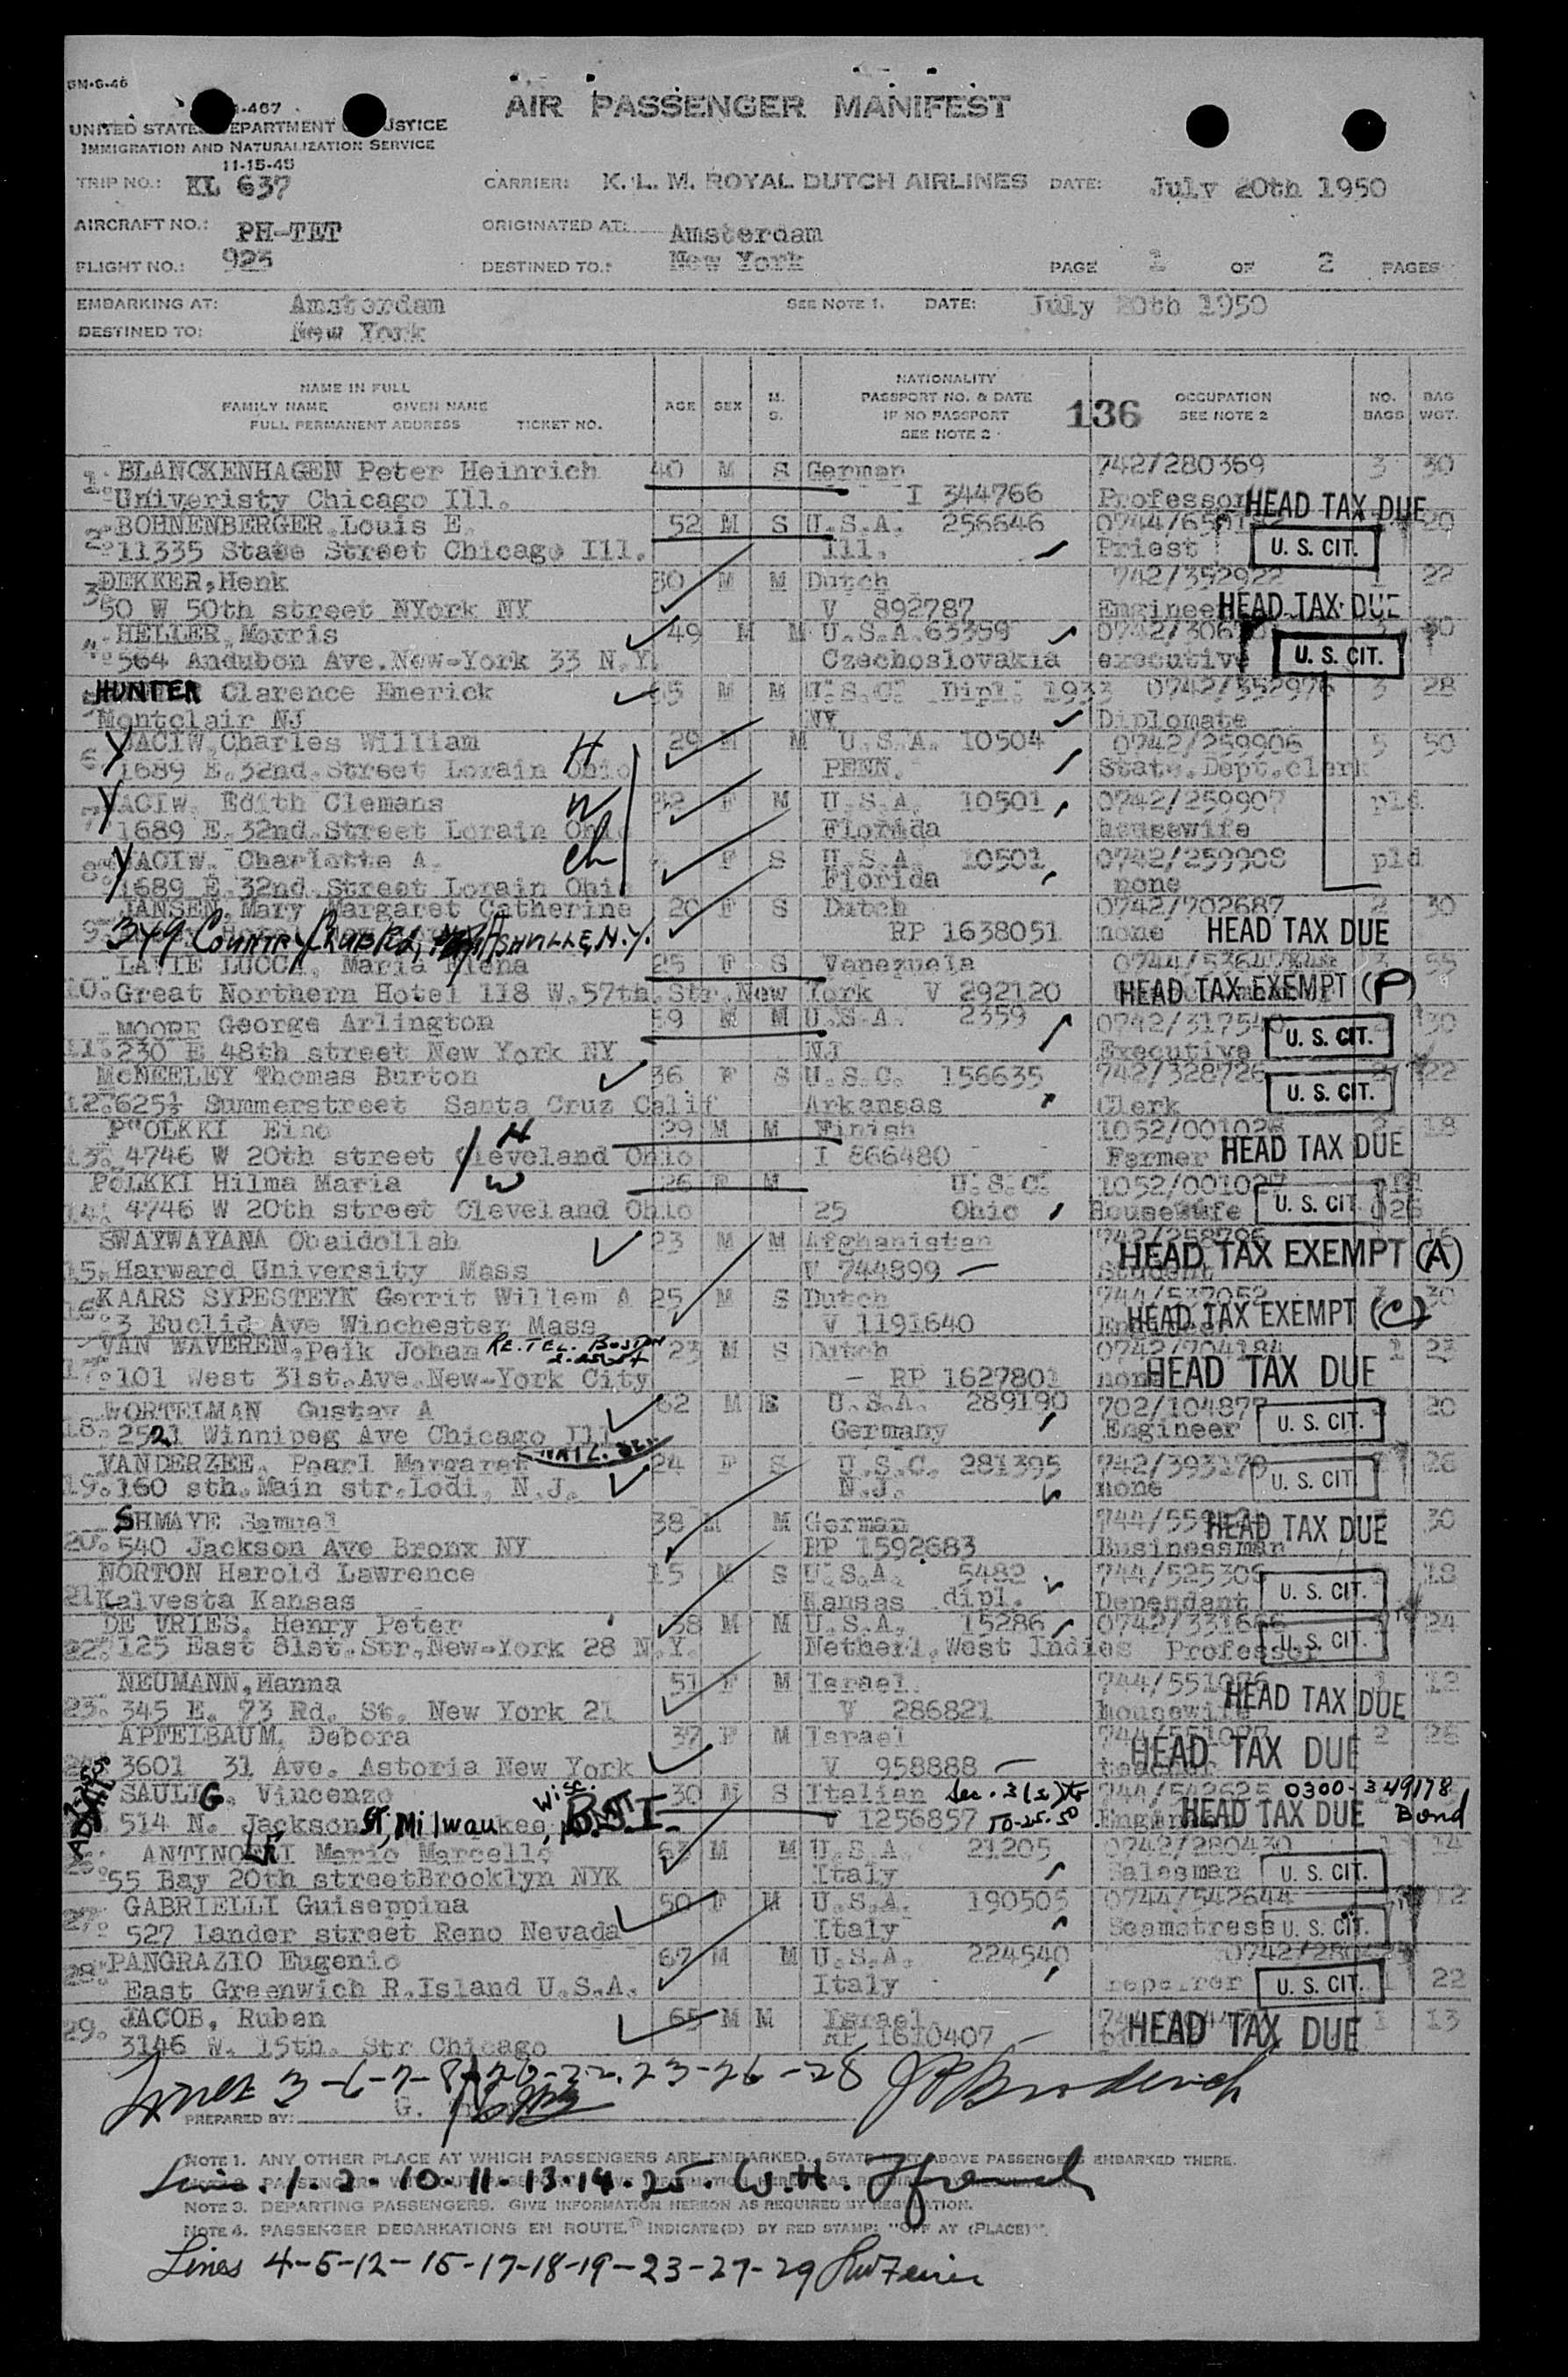 GM-6-46
UNITED STATES DEPARTMENT JUSTICE
IMMIGRATION AND NATURALIZATION SERVICE
11-15-45
AIR PASSENGER MANIFEST
TRIP NO.: KL 637 CARRIER: K. L. M. ROYAL DUTCH AIRLINES DATE: July 20th 1950
AIRCRAFT NO.: PH-TET ORIGINATED AT: Amsterdam
FLIGHT NO.: 925 DESTINED TO: New York PAGE 1 OF 2 PAGES
EMBARKING AT: Amsterdam SEE NOTE 1. DATE: July 20th 1950
DESTINED TO: New York
NAME IN FULL
FAMILY NAME GIVEN NAME
FULL PERMANENT ADDRESS TICKET NO.
AGE SEX M. S.
NATIONALITY
PASSPORT NO. & DATE
IF NO PASSPORT
SEE NOTE 2
136
OCCUPATION
SEE NOTE 2
NO. BAGS
BAG WGT.
1. BLANCKENHAGEN Peter Heinrich 40 M S German 742/280369 3 30
Univeristy Chicago Ill. I 344766 Professor HEAD TAX DUE
2. BOHNENBERGER Louis E. 52 M S U.S.A. 256646 20
11335 State Street Chicago Ill. Ill. Priest U. S. CIT.
3. DEKKER, Henk 30 M M Dutch 742/352922 1 22
50 W 50th street NYork NY V 892787 Engineer HEAD TAX DUE
4. HELLER Morris 49 M M U.S.A. 63359
564 Audubon Ave. New-York 33 N.Y. Czechoslovakia executive U. S. CIT.
HUNTER Clarence Emerick M M U.S.C. Dipl. 1933 0742/352976 3 28
Montclair NJ NY Diplomate
6. YACIW, Charles William H 29 M M U.S.A. 10504 0742/259906 5 50
1689 E. 32nd. Street Lorain Ohio PENN. State. Dept. clerk
7. YACIW. Edith Clemans W F M U.S.A. 10501 0742/259907 pld.
1689 E. 32nd. Street Lorain Ohio Florida housewife
8. YACIW. Charlotte A. ch F S U.S.A. 10501 0742/259908 pld
1689 E. 32nd. Street Lorain Ohio Florida none
9. JANSEN, Mary Margaret Catherine 20 F S Dutch 0742/702687 2 30
349 COUNTRY CLUB N.Y. RP 1638051 none HEAD TAX DUE
10. LUCCA, Maria Elena 25 F S Venezuela 55
Great Northern Hotel 118 W. 57th. Str. New York V 292120 HEAD TAX EXEMPT (P)
11. MOORE George Arlington 59 M M U.S.A. 2359 30
230 E 48th street New York NY NJ Executive U. S. CIT.
12. McNEELEY Thomas Burton 36 F S U.S.C. 156635 742/328726 22
625½ Summerstreet Santa Cruz Calif Arkansas Clerk U. S. CIT.
13. P"OLKKI Eino H 29 M M Finish 2 18
4746 W 20th street Cleveland Ohio I 866480 Farmer HEAD TAX DUE
14. PöLKKI Hilma Maria W 26 F M U.S.C.
4746 W 20th street Cleveland Ohio 25 Ohio Housewife U. S. CIT.
15. SWAYWAYANA Obaidollah 23 M M Afghanistan 16
Harward University Mass V 744899 Student HEAD TAX EXEMPT (A)
16. KAARS SYPESTEYN Gerrit Willem A 25 M S Dutch 30
3 Euclid Ave Winchester Mass V 1191640 HEAD TAX EXEMPT (C)
17. VAN WAVEREN, Peik Johan RE. TEL. BOSTON 23 M S Dutch 0742/704184 1 23
101 West 31st. Ave. New-York City RP 1627801 none HEAD TAX DUE
18. WORTELMAN Gustav A 62 M U.S.A. 289190 20
2521 Winnipeg Ave Chicago Ill Germany Engineer U. S. CIT.
19. VANDERZEE, Pearl Margaret 24 F S U.S.C. 281395 742/393179 26
160 sth. Main str. Lodi, N.J. N.J. none U. S. CIT.
20. SHMAYE Samuel 38 M M German 30
540 Jackson Ave Bronx NY RP 1592683 Businessman HEAD TAX DUE
21 NORTON Harold Lawrence 15 M S U.S.A. 5482 18
Kalvesta Kansas Kansas dipl. Dependant U. S. CIT.
22. DE VRIES, Henry Peter 38 M M U.S.A. 15286 0742/331666 24
125 East 81st. Str. New-York 28 N.Y. Netherl. West Indies Professor U. S. CIT.
23. NEUMANN, Hanna 51 F M Israel 744/551076 1 12
345 E. 73 Rd. St. New York 21 V 286821 housewife HEAD TAX DUE
APFELBAUM, Debora 37 F M Israel 744/551077 2 26
3601 31 Ave. Astoria New York V 958888 HEAD TAX DUE
SAULIG, Vincenzo 30 M S Italian 744/542625 0300-349178
514 N. Jackson ST, Milwaukee, Wisc. B.S.I. V 1256857 HEAD TAX DUE Bond
ANTINO Mario Marcello 63 M M U.S.A. 21205 0742/280430 14
55 Bay 20th street Brooklyn NYK Italy Salesman U. S. CIT.
27. GABRIELLI Guiseppina 50 F M U.S.A. 190505 0744/542644 12
527 Lander street Reno Nevada Italy Seamstress U. S. CIT.
28. PANGRAZIO Eugenio 67 M M U.S.A. 224540
East Greenwich R. Island U.S.A. Italy repairer U. S. CIT. 1 22
29. JACOB, Ruben 65 M M Israel 1 13
3146 W. 15th. Str Chicago RP 1610407 HEAD TAX DUE
Lines 3-6-7-8-
PREPARED BY: G.
NOTE 1. ANY OTHER PLACE AT WHICH PASSENGERS ARE EMBARKED, STATE ABOVE PASSENGERS EMBARKED THERE.
1. 2. 10. 11. 13. 14. 25. W. H.
NOTE 3. DEPARTING PASSENGERS. GIVE INFORMATION HEREON AS REQUIRED BY REGULATION.
NOTE 4. PASSENGER DEBARKATIONS EN ROUTE. INDICATE(D) BY RED STAMP: "OFF AT (PLACE)".
Lines 4-5-12-15-17-18-19-23-27-29